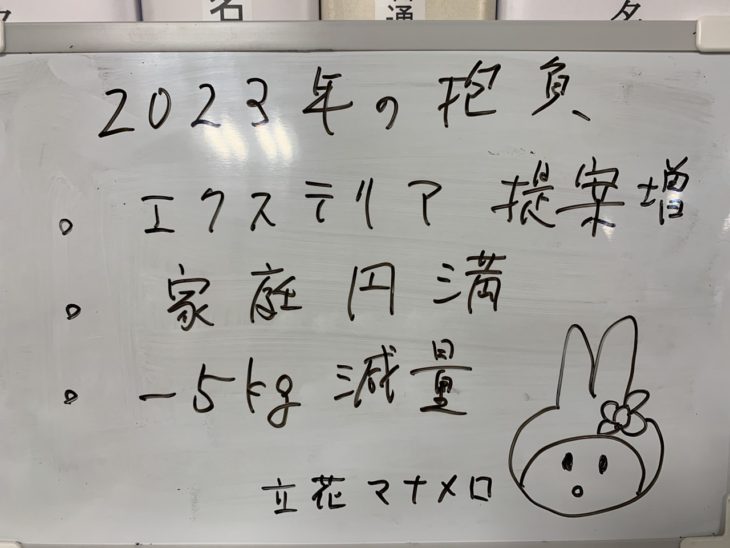 名
通
名
2023年の抱負
。エクステリア 提案増
。家庭円満
。-5kg減量
立花マナメロ